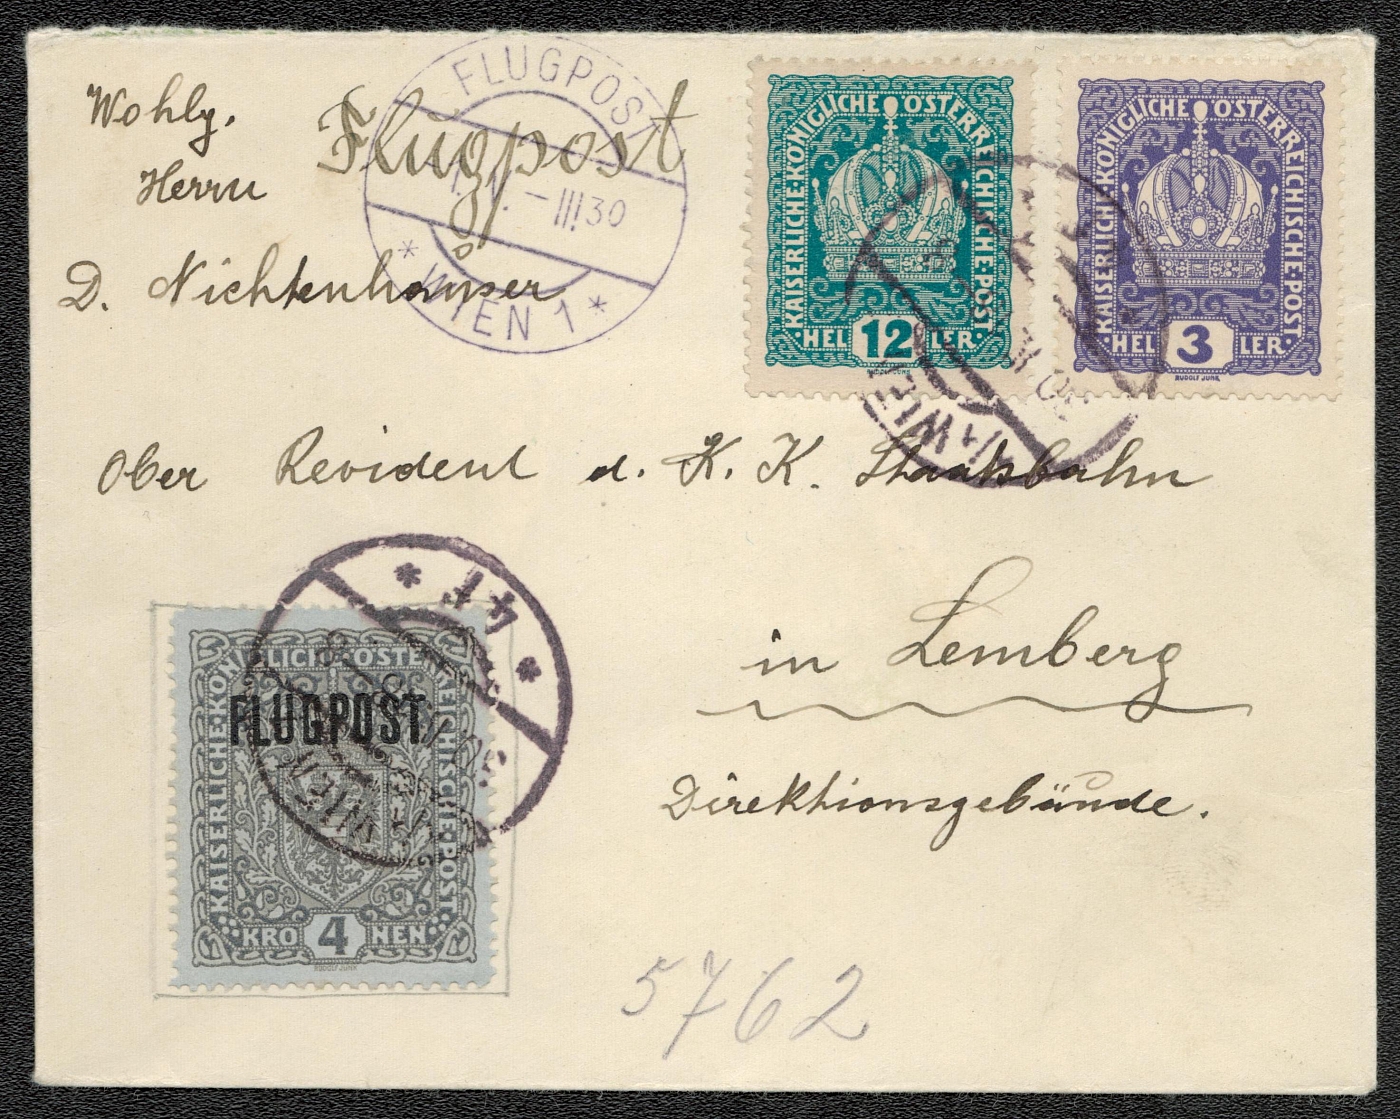 Wohlg.
Flugpost
Herrn
D. Nichtenhauser
FLUGPOST
III 30
* WIEN 1 *
KAISERLICHE·KÖNIGLICHE·ÖSTERREICHISCHE·POST
HEL 12 LER
RUDOLF JUNK
KAISERLICHE·KÖNIGLICHE·ÖSTERREICHISCHE·POST
HEL 3 LER
RUDOLF JUNK
Ober Revident d. K. K. Staatsbahn
in Lemberg
Direktionsgebäude.
KAISERLICHE·KÖNIGLICHE·ÖSTERREICHISCHE·POST
FLUGPOST
KRO 4 NEN
RUDOLF JUNK
5762